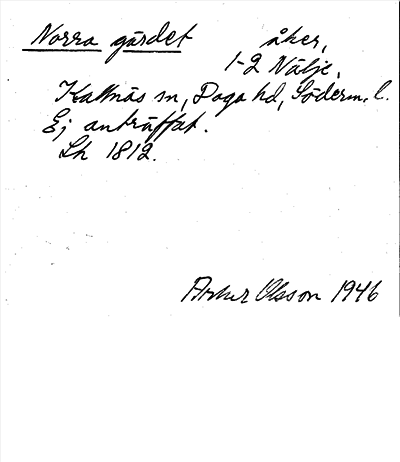 Norra gärdet åker,
1-2 Nälje,
Kattnäs sn, Daga hd, Söderm. l.
Ej anträffat.
Lh 1812.
Artur Olsson 1946